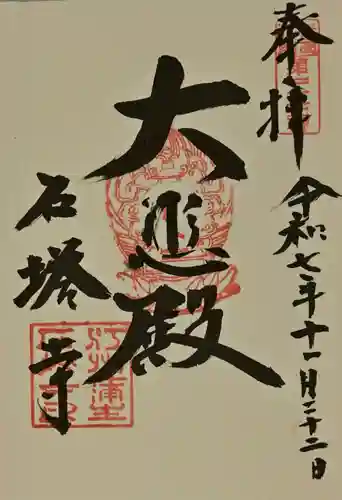 奉拝
令和七年十一月二十二日
大悲殿
石塔寺
江州蒲生